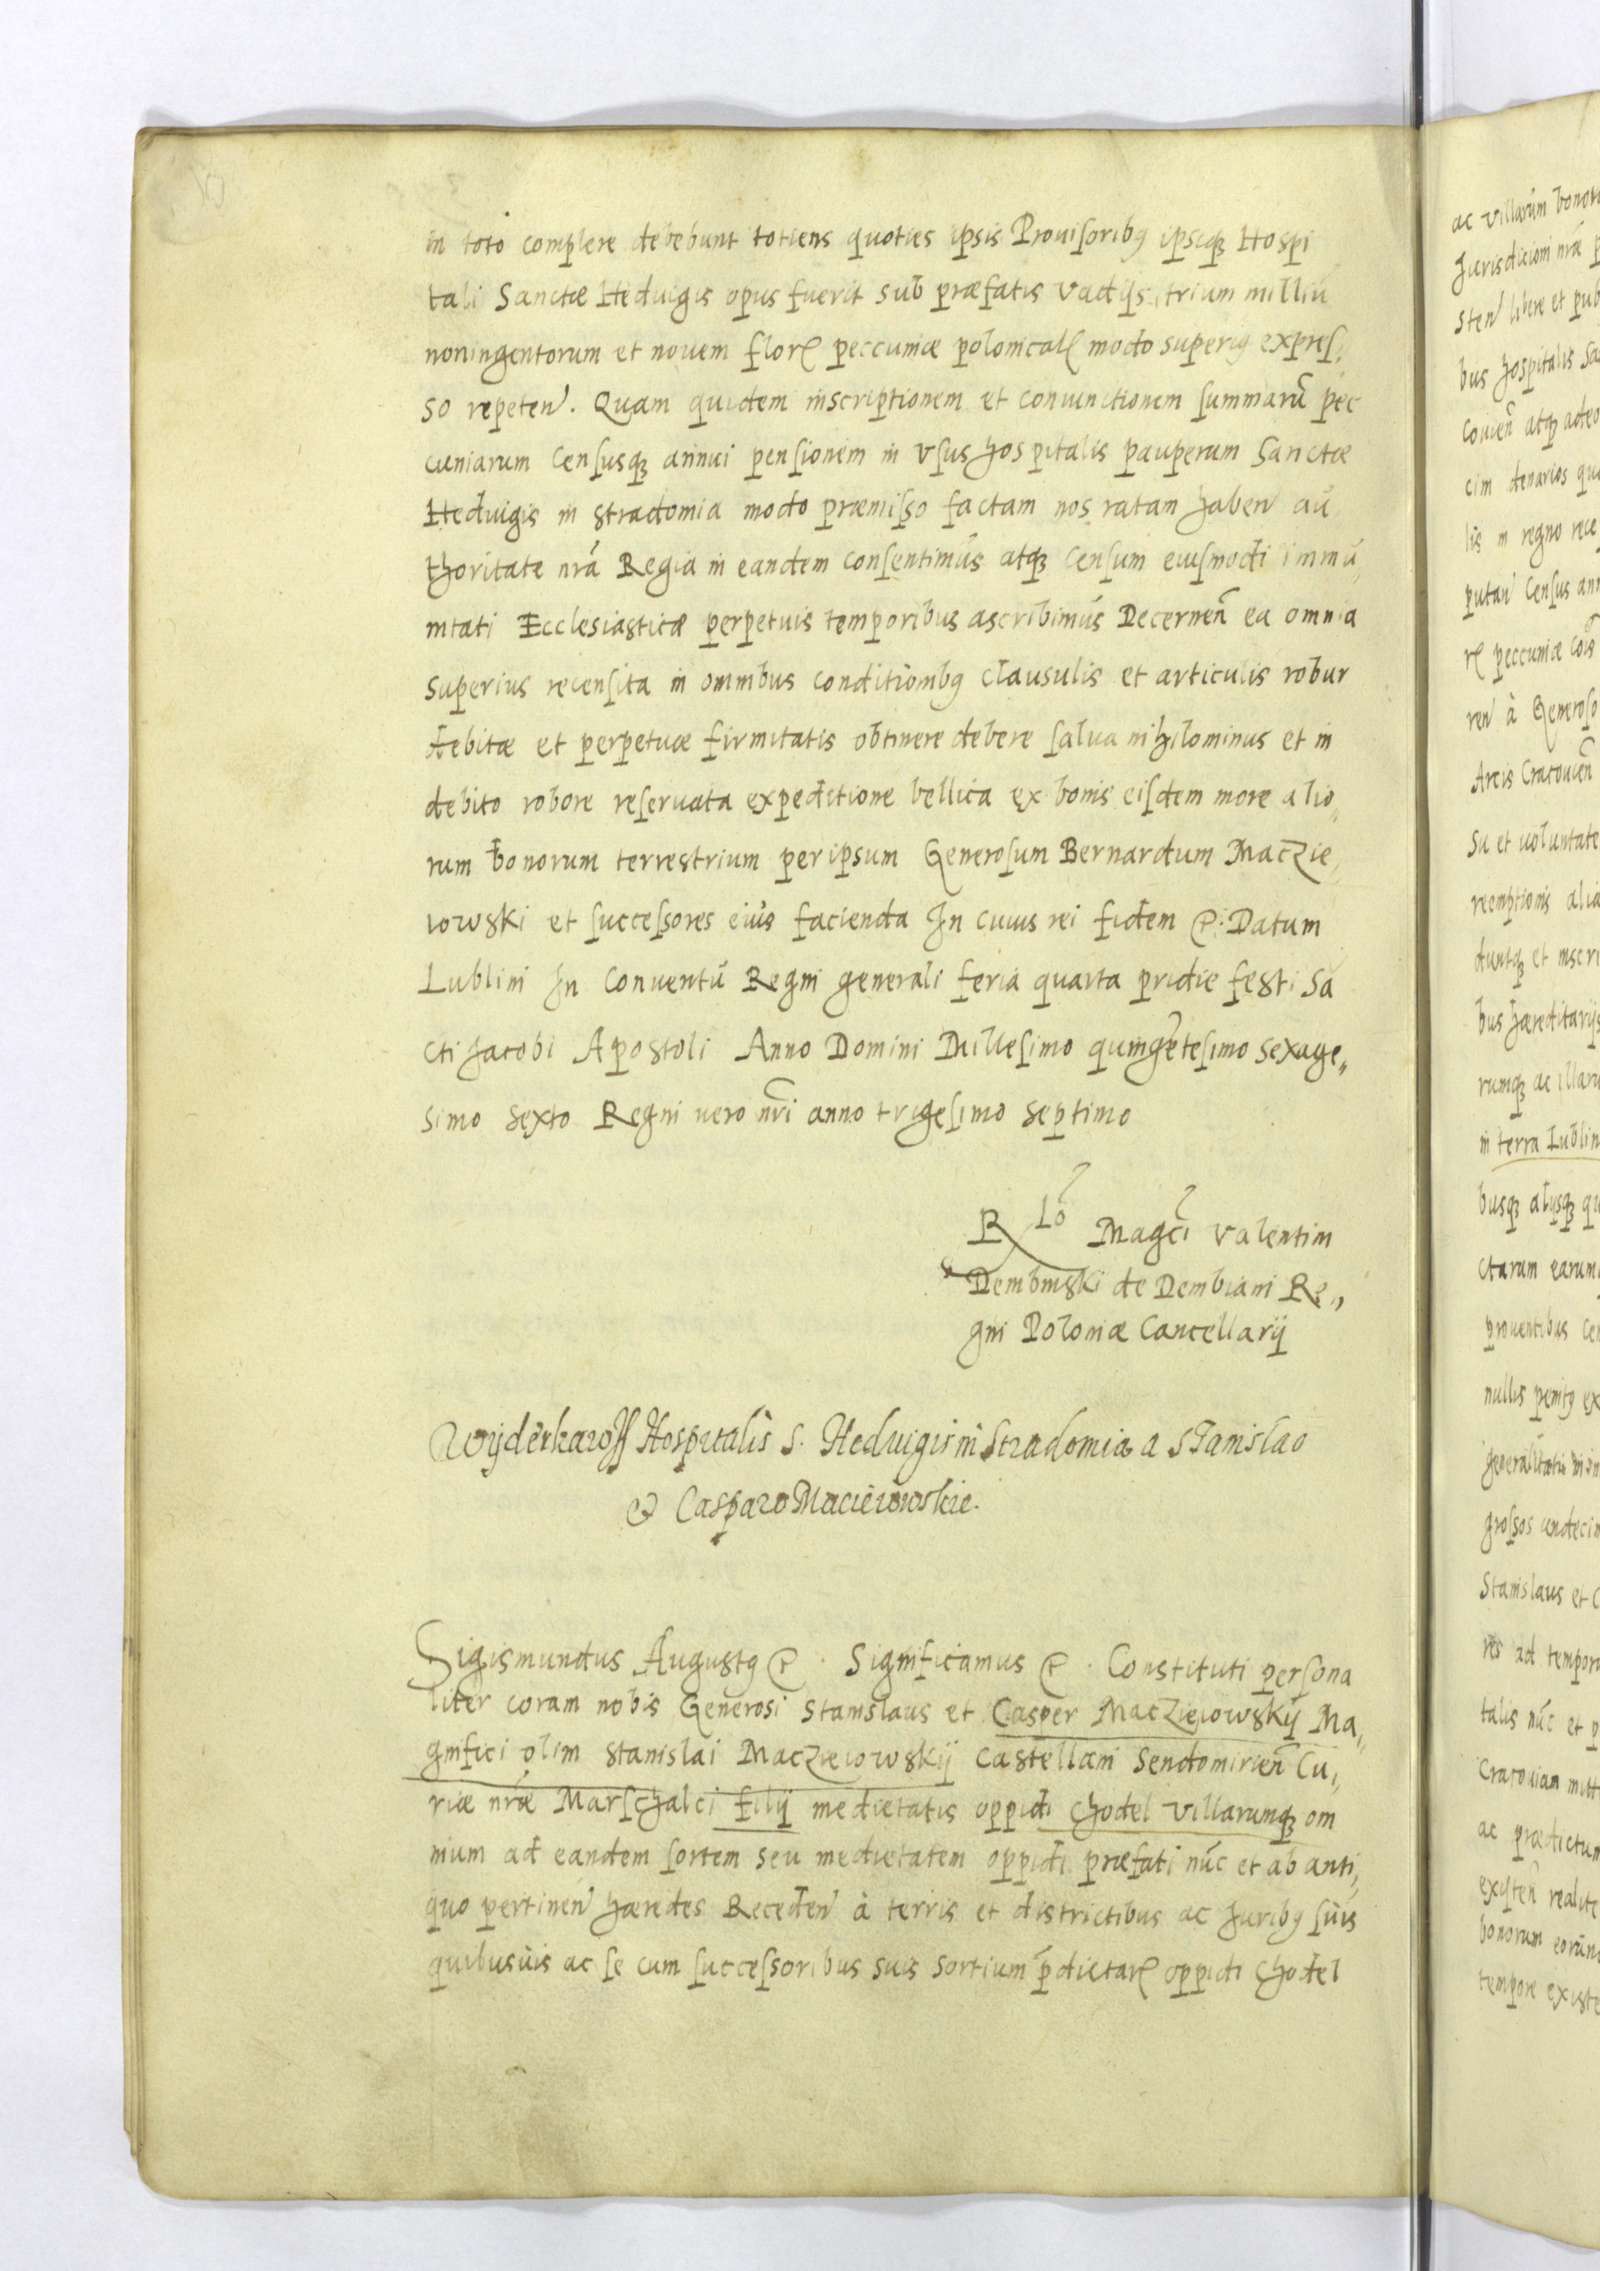 in toto complere debebunt totiens quoties ipsis Prouisoribꝫ ipsiqꝫ Hospi
tali Sanctæ Heduigis opus fuerit sub præfatis vadijs trium milliũ
noningentorum et nouem flor peccuniæ polonical modo superiꝫ expres,
so repeten. Quam quidem inscriptionem et coniunctionem summarũ pec
cuniarum Censusqꝫ annui pensionem in vsus hospitalis pauperum Sanctæ
Heduigis in stradomia modo præmisso factam nos ratam haben au
thoritate nrã Regia in eandem consentimus atqꝫ Censum eiusmodi immu,
nitati Ecclesiasticæ perpetuis temporibus ascribimus Decernen̄ ea omnia
superius recensita in omnibus conditionibꝫ clausulis et articulis robur
debitæ et perpetuæ firmitatis obtinere debere salua nihilominus et in
debito robore reseruata expeditione bellica ex bonis eisdem more alio,
rum bonorum terrestrium per ipsum Generosum Bernardum Maczie,
iowski et successores eius facienda In cuius rei fidem &c: Datum
Lublini In Conuentu Regni generali feria quarta pridie festi Sa
cti Jacobi Apostoli Anno Domini Millesimo quingẽtesimo sexage,,
simo sexto Regni uero nr̃i anno trigesimo septimo
R lõ Magci Valentini
Dembinski de Dembiani Re,,
gni Poloniæ Cancellarij
Wyderkaroff Hospitalis S. Heduigis in Stradomia a Stanislao
& Casparo Macieiowskie.
Sigismundus Augustꝫ &c. Significamus &c. Constituti persona
liter coram nobis Generosi Stanislaus et Casper Maczieiowskij Ma,
gnifici olim Stanislai Maczieiowskij Castellani Sendomirien̄ Cu,,
riæ nræ Marschalci filij medietatis oppidi Chodel villarumqꝫ om
nium ad eandem sortem seu medietatem oppidi præfati nũc et ab anti,
quo pertinen̄ hæredes Receden̄ à terris et districtibus ac Juribꝫ suis
quibusuis ac se cum successoribus suis sortium p̄dictar oppidi Chodel
ac villarum bono
Jurisdicioni nræ p
sten̄ libere et pub
bus hospitalis Sa
couien̄ atqꝫ adeo
cim denarios qu
lis in regno rece
putan̄ Census ann
peccuniæ cõis
ren̄ à Generoso
Arcis Cracouien̄
Sa et uoluntate
reemptionis alia
duntqꝫ et inscri
bus hæreditarijs
rumqꝫ ac illaru
in terra Lublin
busqꝫ alijsqꝫ qu
ctarum earum
prouentibus Ce
nullis penitꝫ ex
generalitatis
grossos undecim
Stanislaus et C
res ad tempor
talis nũc et p
Cracouian mitt
ac prædictum
existen̄ realite
bonorum eorun
tempore existe